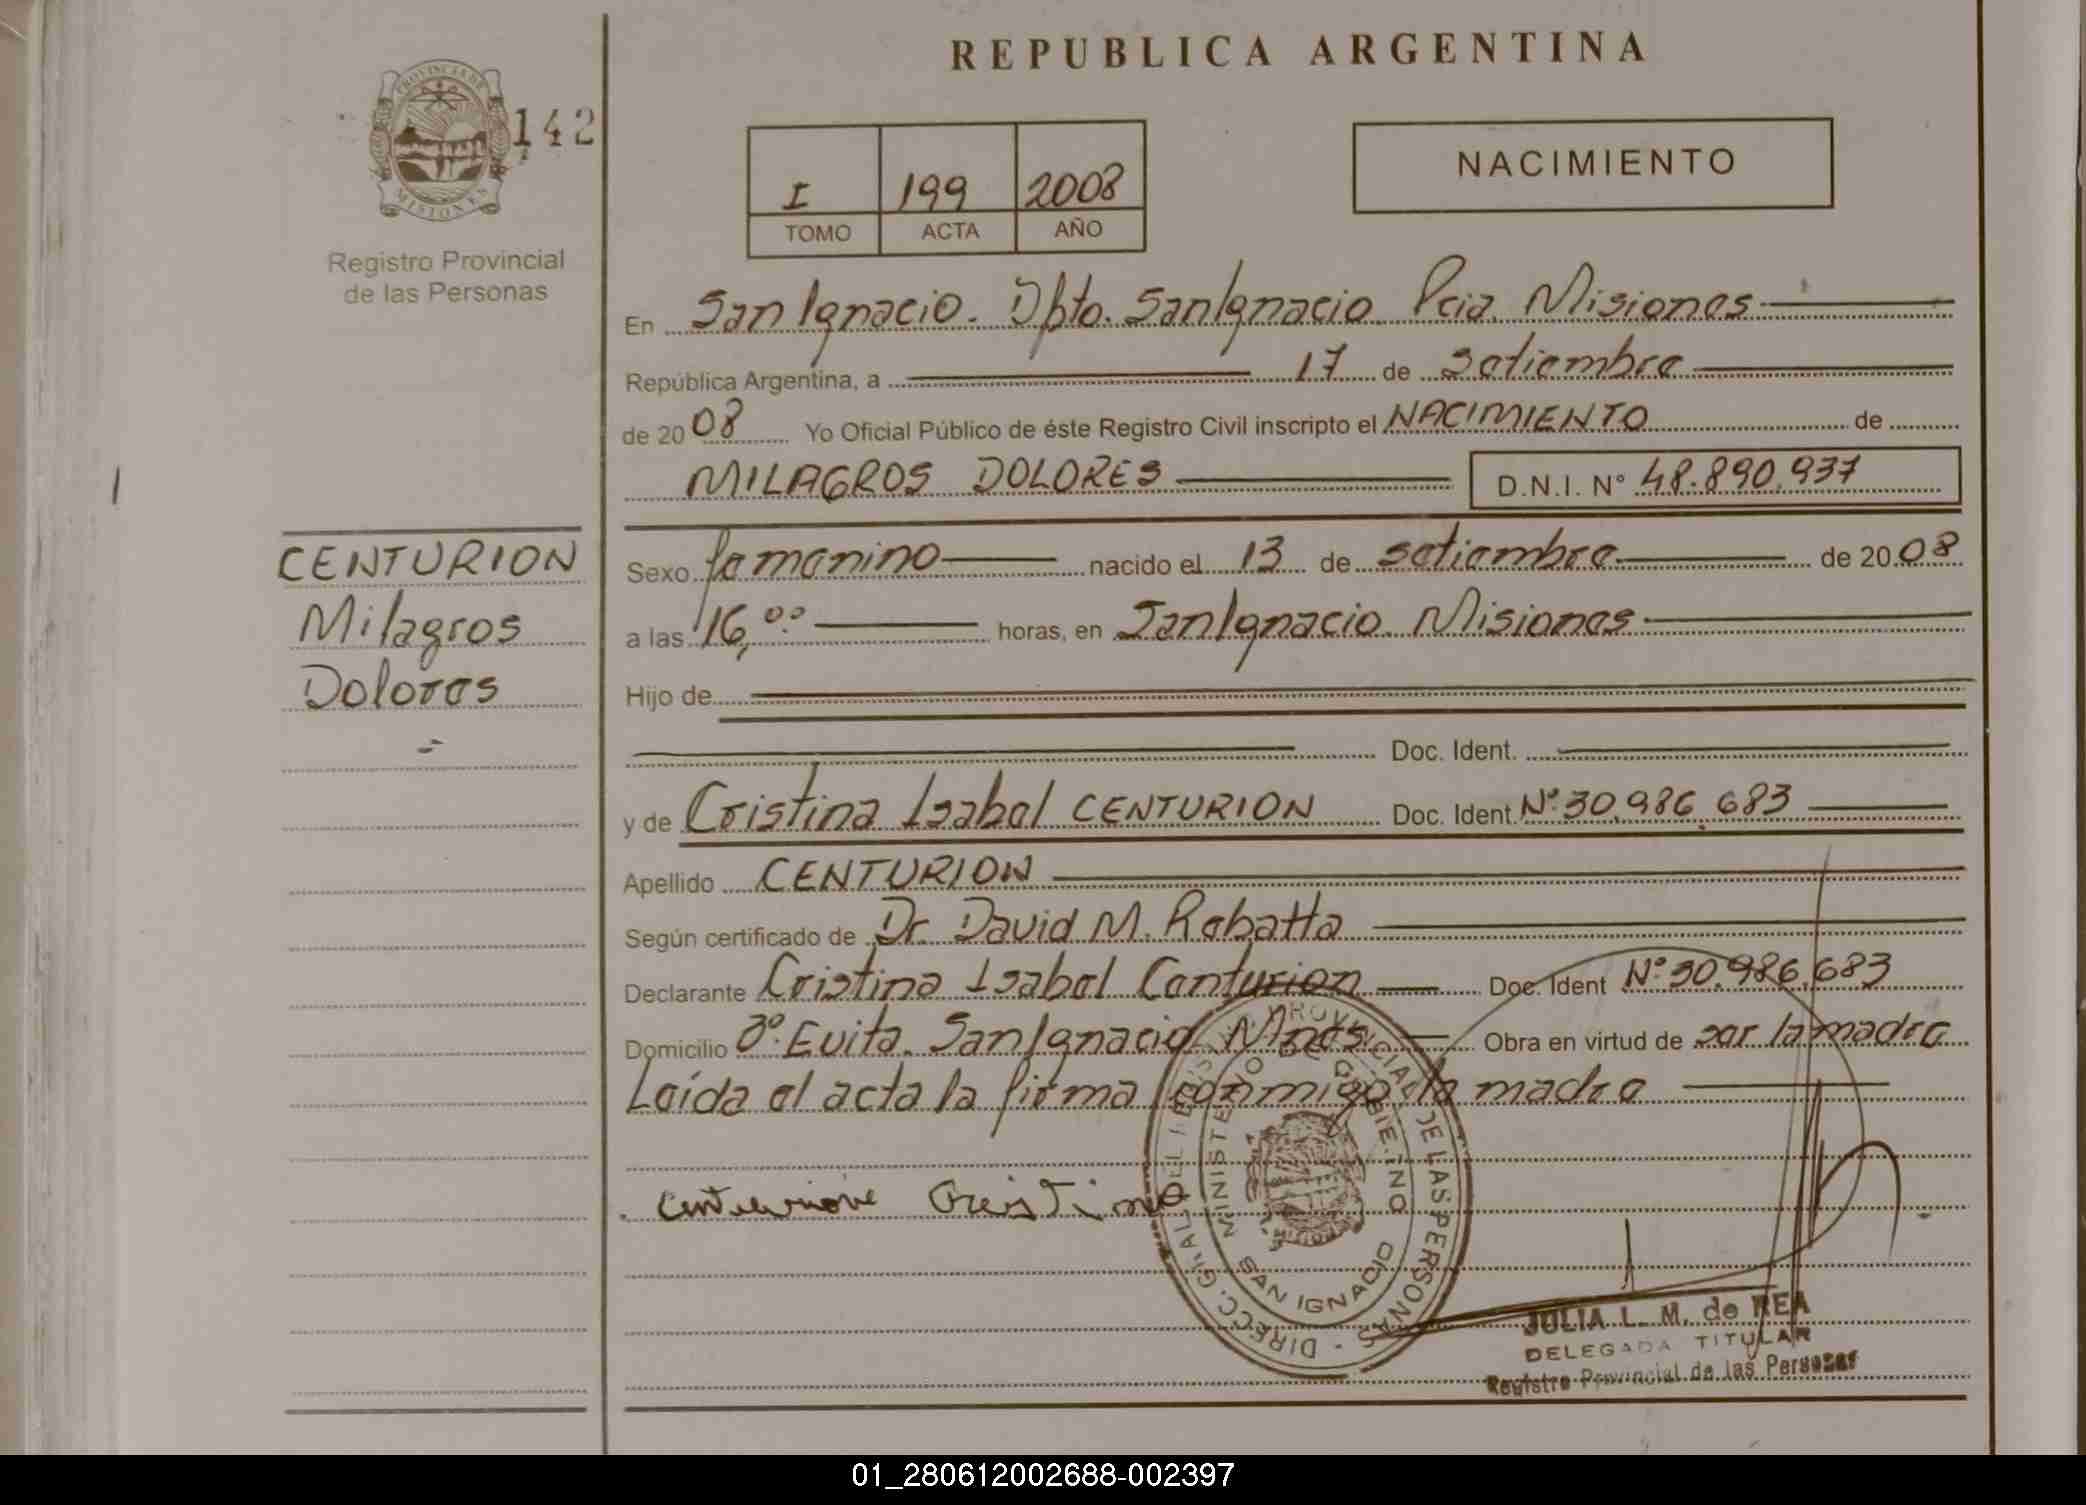 REPUBLICA ARGENTINA
PROVINCIA DE
MISIONES
142
Registro Provincial
de las Personas
I 199 2008
TOMO ACTA AÑO
NACIMIENTO
En San Ignacio. Dpto. San Ignacio Pcia. Misiones
República Argentina, a 17 de setiembre
de 2008 Yo Oficial Público de éste Registro Civil inscripto el NACIMIENTO de
MILAGROS DOLORES D.N.I. N° 48.890.937
CENTURION
Milagros
Dolores
Sexo femenino nacido el 13 de setiembre de 2008
a las 16,00 horas, en San Ignacio Misiones
Hijo de
Doc. Ident.
y de Cristina Isabel CENTURION Doc. Ident. N° 30.986.683
Apellido CENTURION
Según certificado de Dr. David M. Rabatta
Declarante Cristina Isabel Centurion Doc. Ident N° 30.986.683
Domicilio Bº. Evita. San Ignacio Mnes. Obra en virtud de ser la madre
Leída el acta la firma conmigo la madre
Centurione Cristina
DIRECC. GRAL. DEL REGISTRO PROVINCIAL DE LAS PERSONAS
MINISTERIO DE GOBIERNO
SAN IGNACIO
JULIA L. M. de REA
DELEGADA TITULAR
Registro Provincial de las Personas
01_280612002688-002397